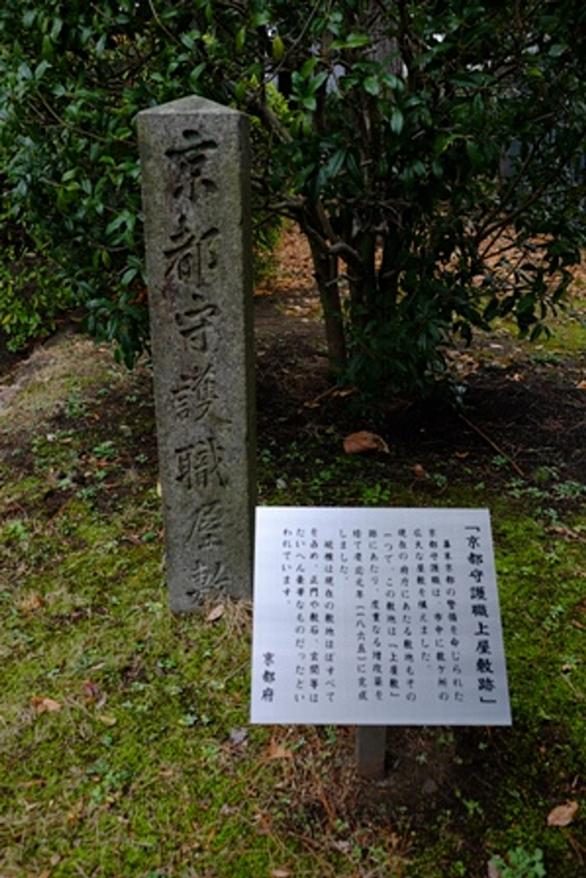 京都守護職屋敷
「京都守護職上屋敷跡」
幕末京都の警備を命じられた
京都守護職は、市中に数ケ所の
広大な屋敷を構えました。
現在の府庁にあたる敷地もその
一つで、この敷地は「上屋敷」
跡にあたり、度重なる増改築を
経て慶応元年(一八六五)に完成
しました。
規模は現在の敷地ほぼすべて
を占め、正門や敷石、玄関等は
たいへん豪華なものだったとい
われています。
京都府